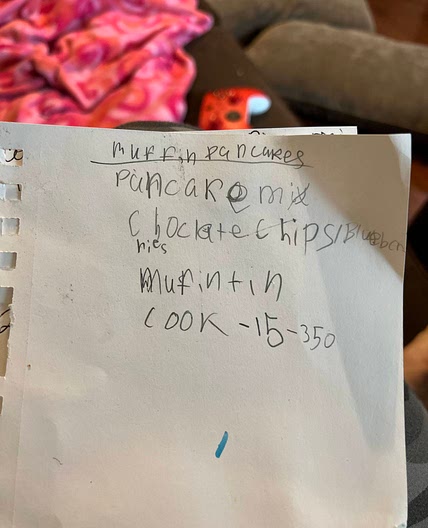 muffin pancakes
Pancake mix
Choclate Chips/Blueber
ries
mufin tin
COOK -15-350